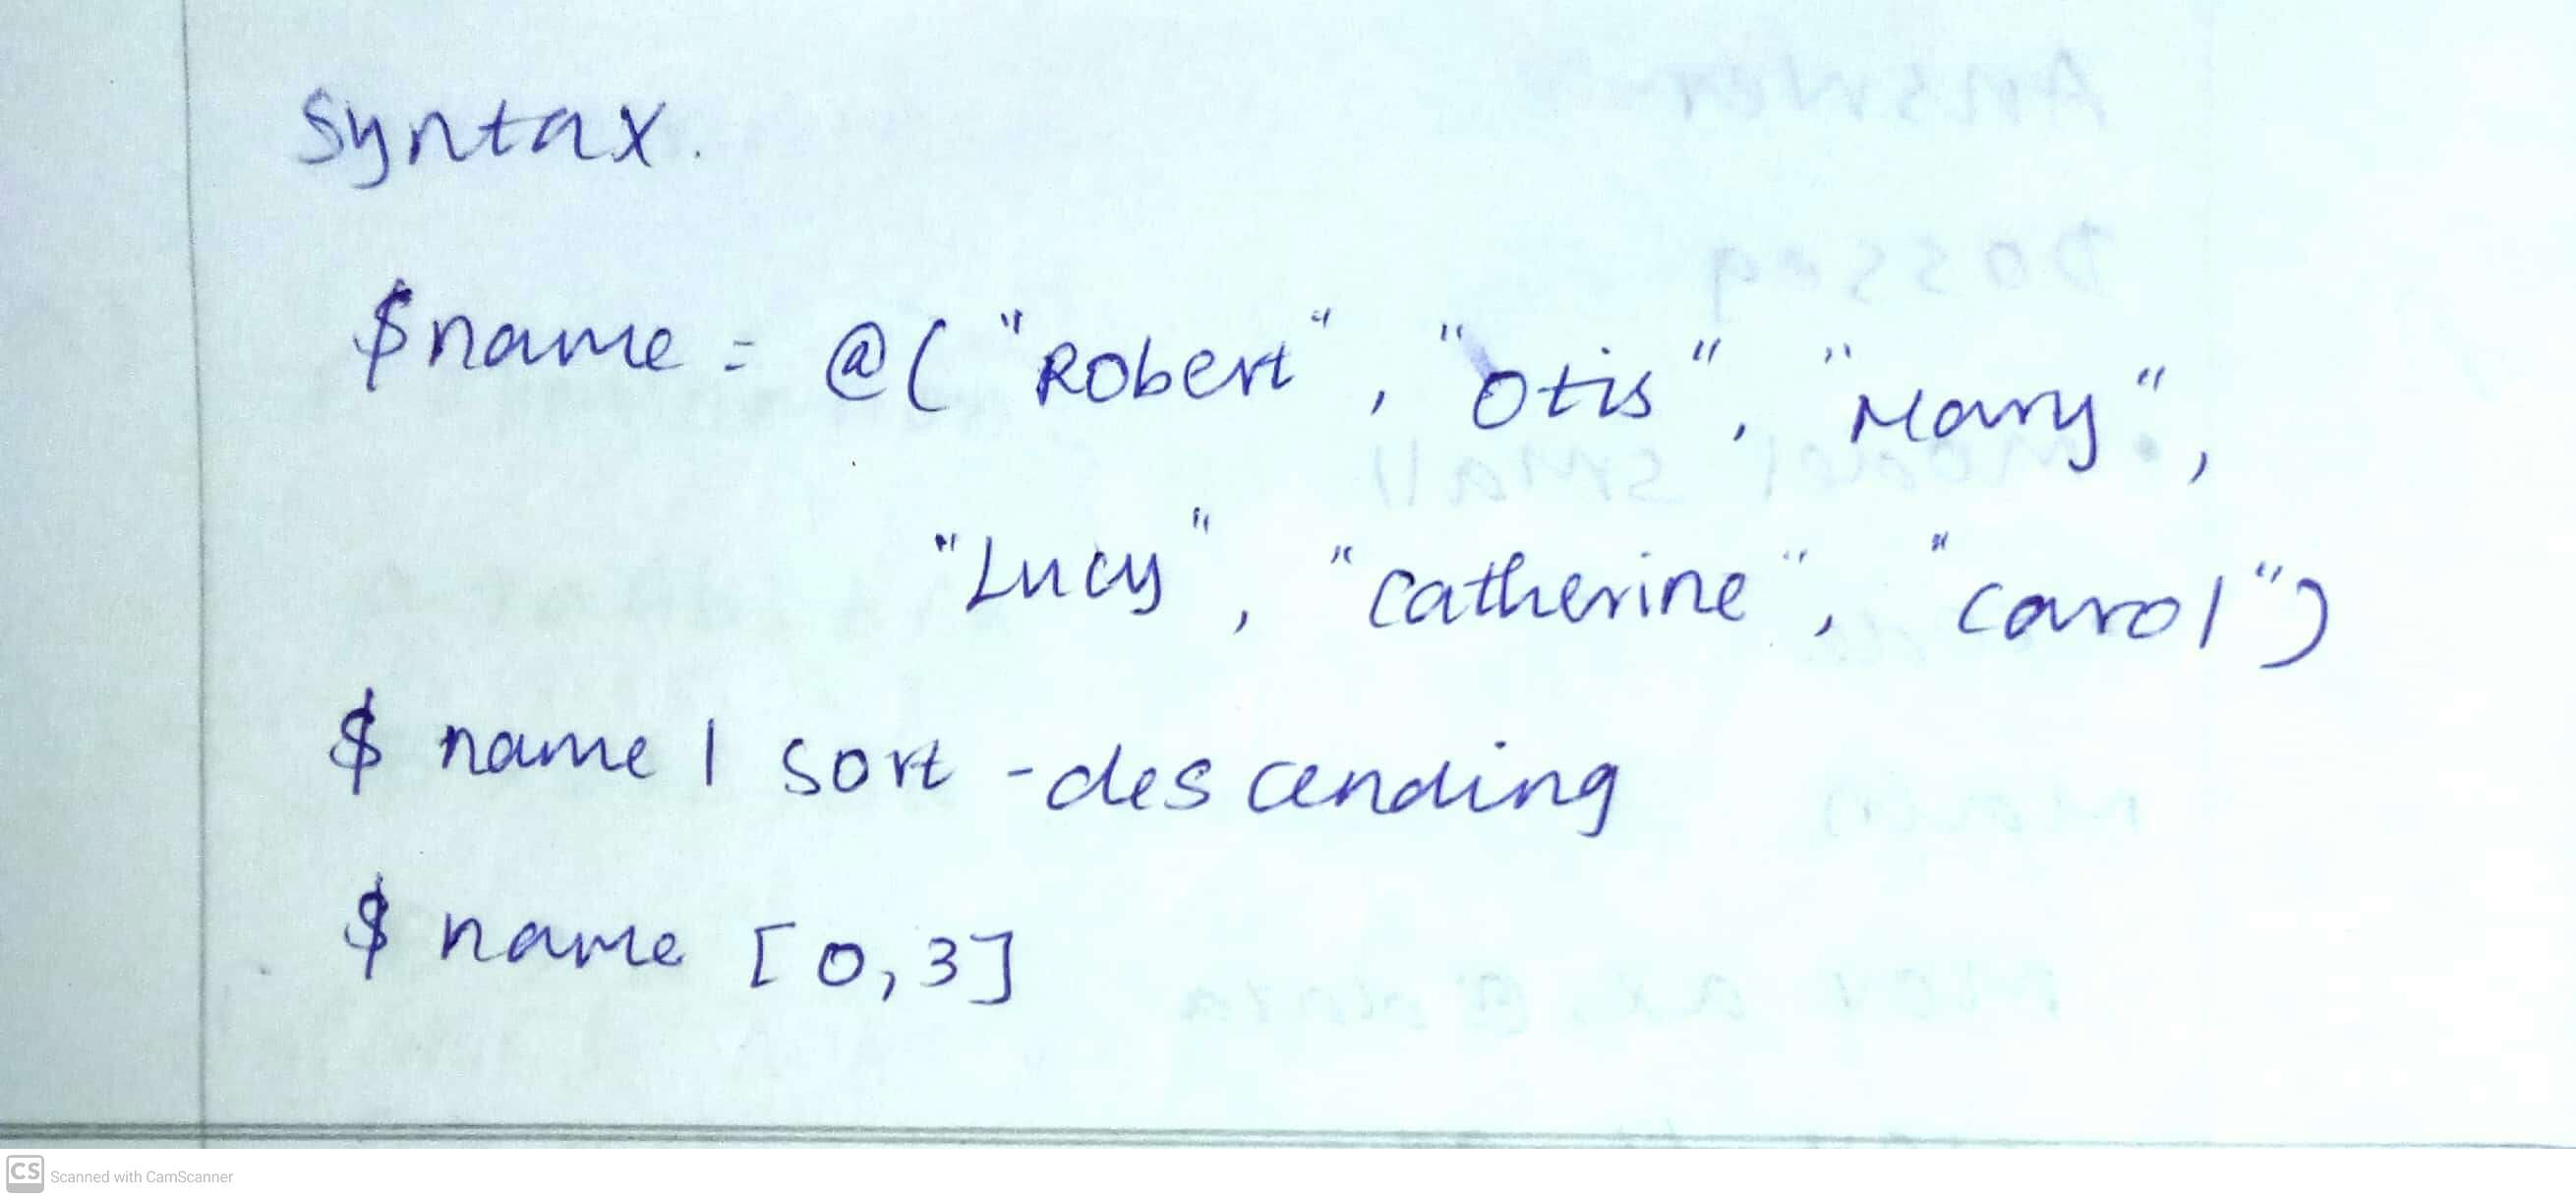 Syntax.
$name = @("Robert", "Otis", "Mary",
"Lucy", "Catherine", "carol")
$ name | sort -descending
$ name [0,3]
CS Scanned with CamScanner